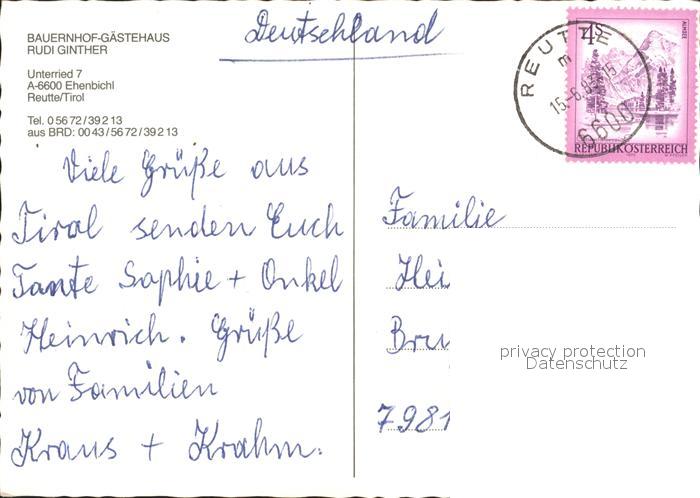 BAUERNHOF-GÄSTEHAUS
RUDI GINTHER
Unterried 7
A-6600 Ehenbichl
Reutte/Tirol
Tel. 0 56 72 / 39 2 13
aus BRD: 00 43 / 56 72 / 39 2 13
Deutschland
REUTTE
6600
4S
REPUBLIK ÖSTERREICH
Viele Grüße aus
Tirol senden Euch
Tante Sophie + Onkel
Heinrich. Grüße
von Familien
Kraus + Krahm.
Familie
Hei
Bru
7981
privacy protection
Datenschutz